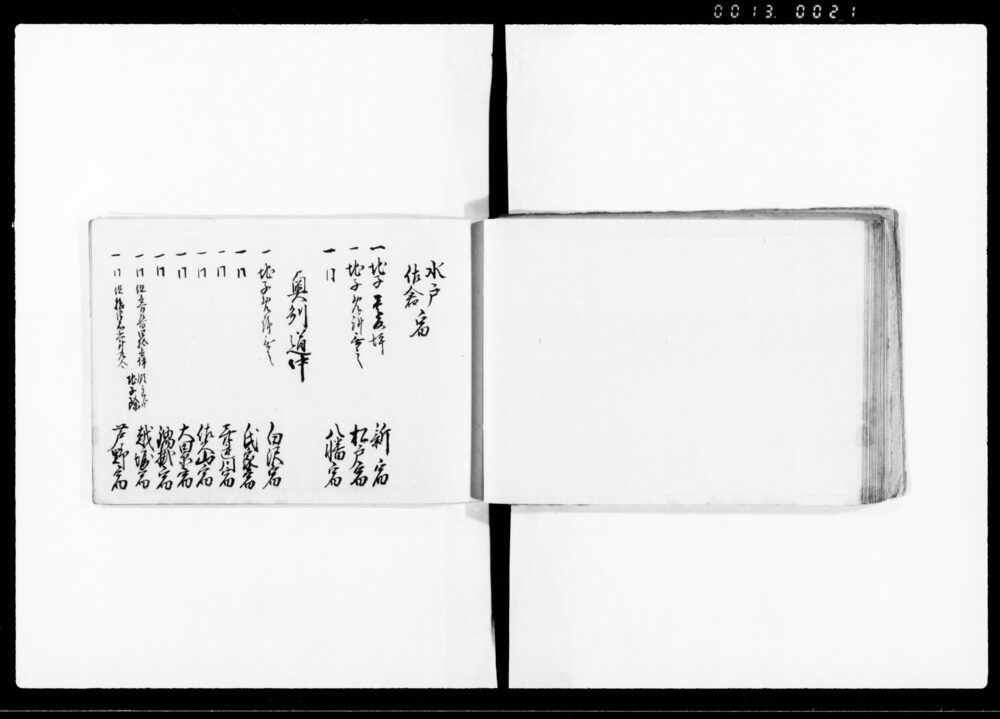 0013 0021
水戸
佐倉 宿
一地子 坪 新宿
一地子免許無之 松戸宿
一同 八幡宿
奥州道中
一地子免許無之 白沢宿
一同 氏家宿
一同 喜連川宿
一同 佐久山宿
一同 大田原宿
一同 鍋掛宿
一同 但 地子除 越堀宿
一同 但 芦野宿